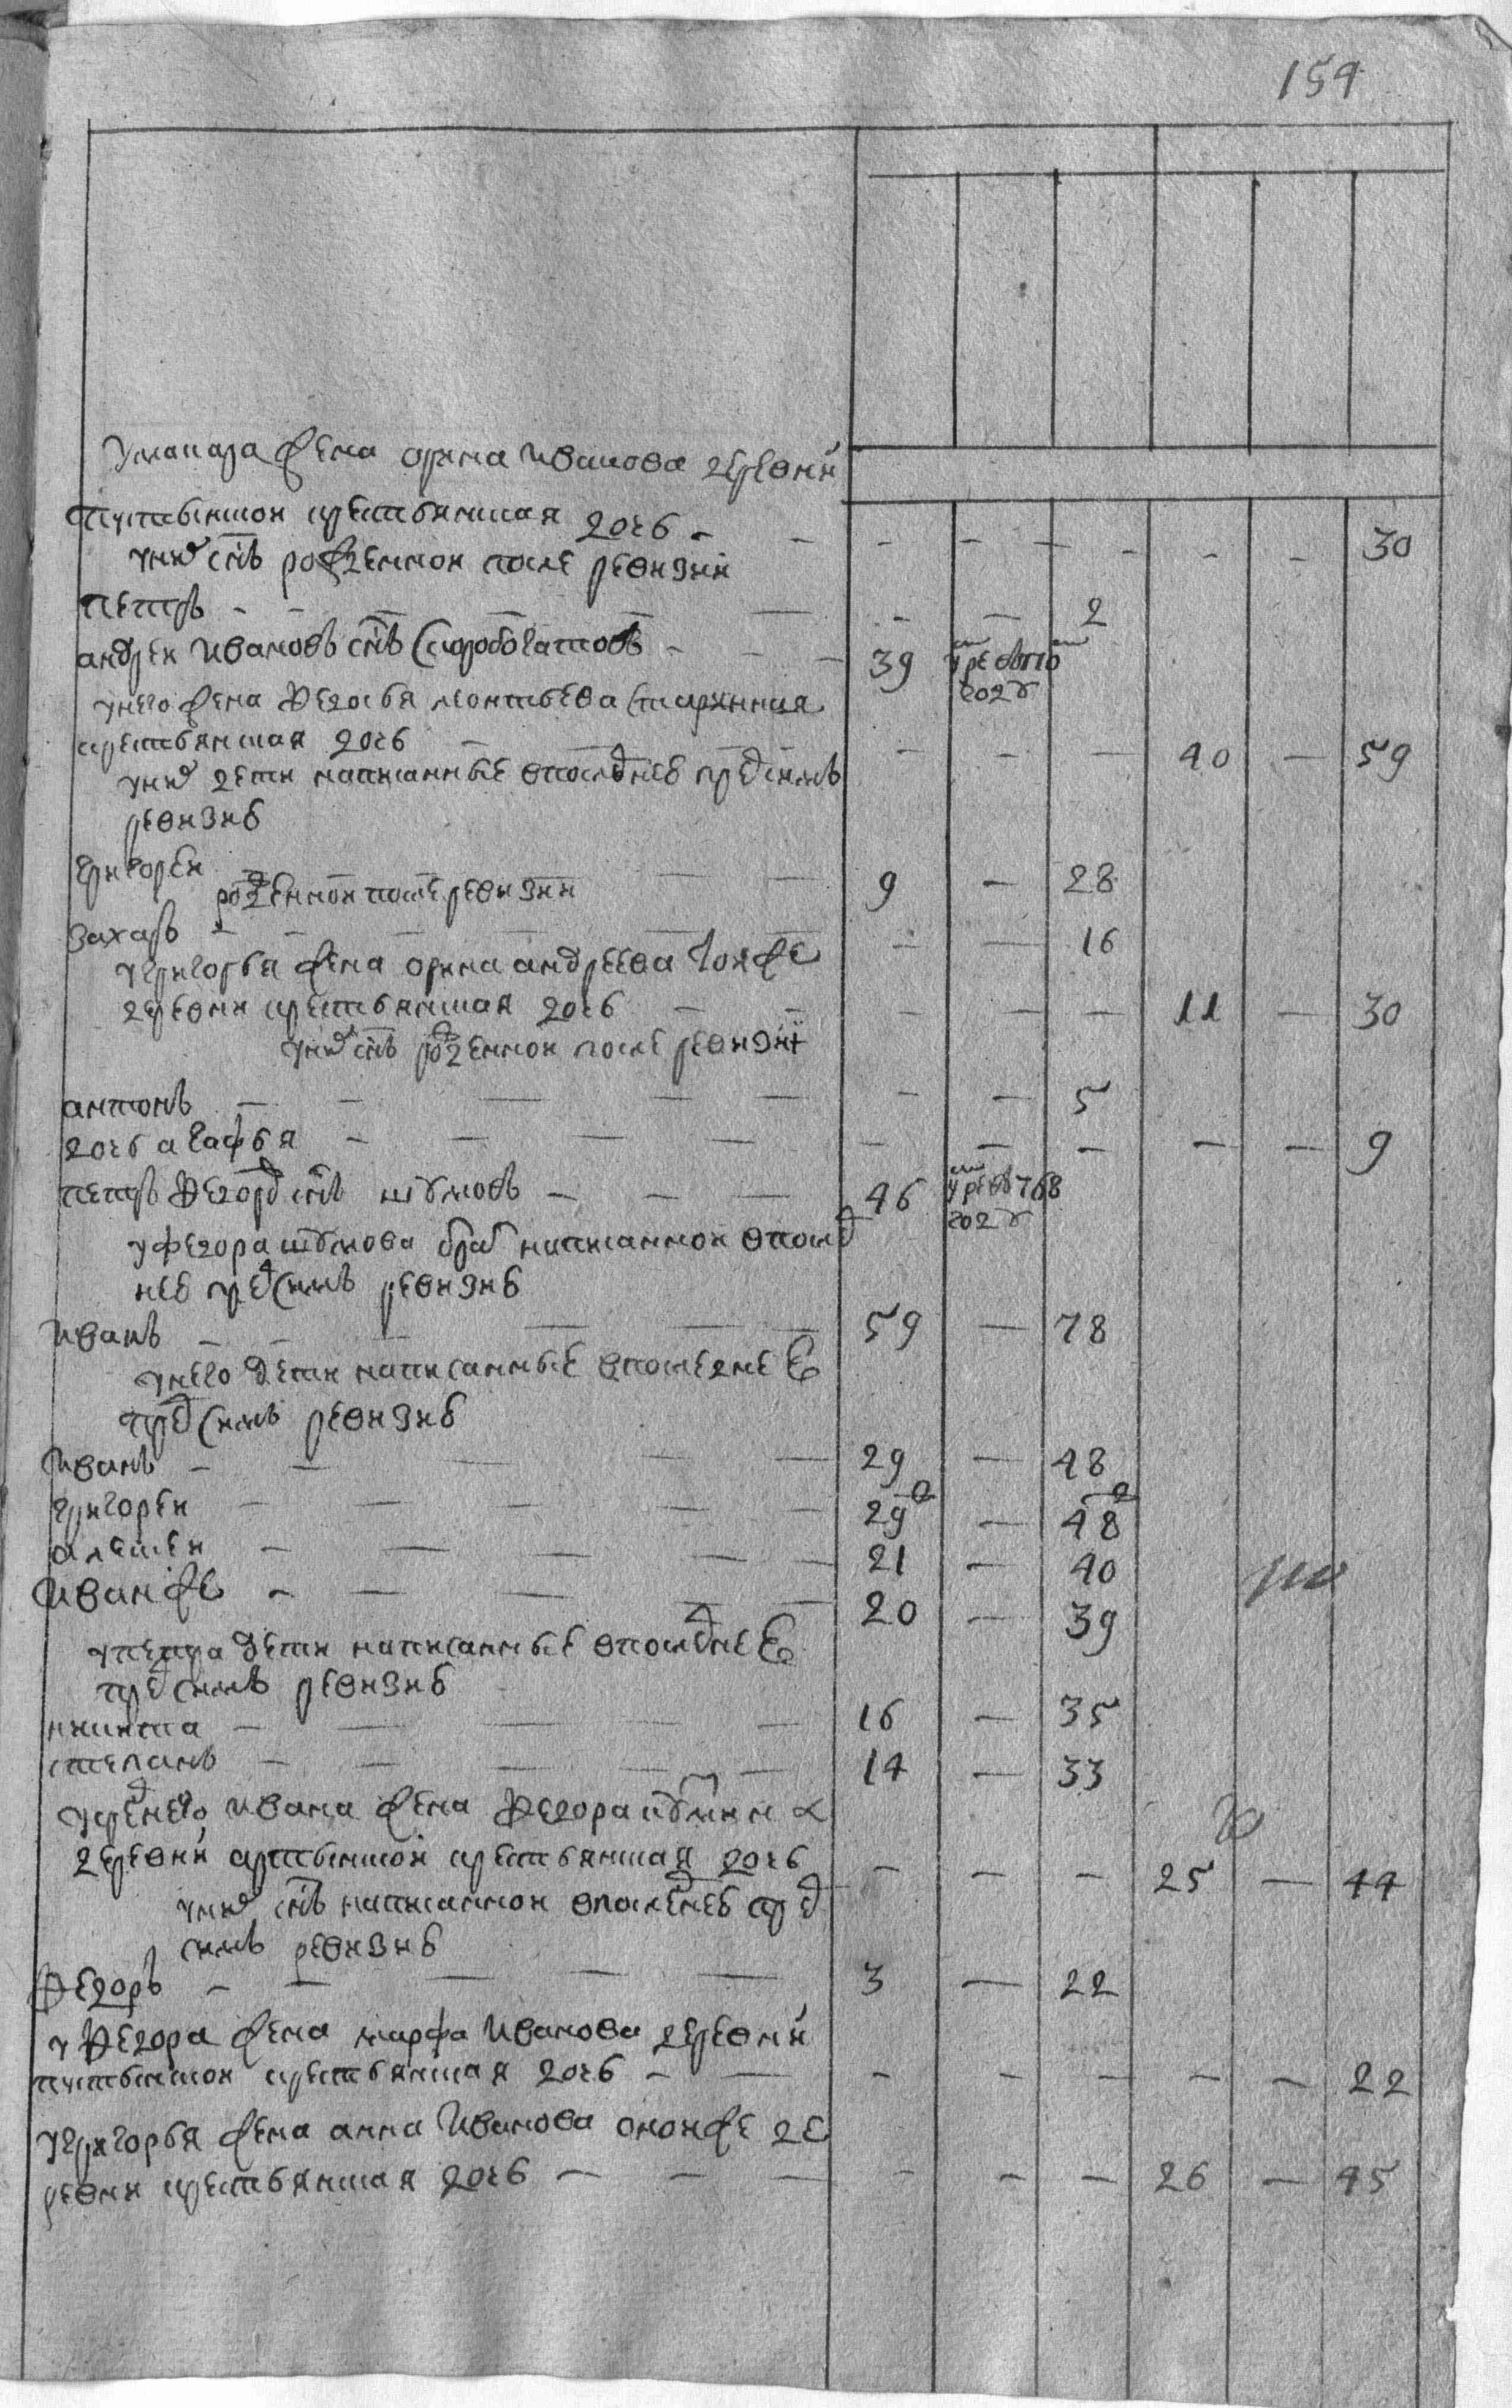 154
умакара жена орина иванова деревни
пустынной крестьянская дочь - - - - - - - - 30
унихъ снъ рожденной после ревизии
петръ - - - - - - - 2
андрей ивановъ снъ скоробогатовъ - - - 39 умре въ 770
году
унего жена федосья леонтьева старинная
крестьянская дочь - - - - - - 40 - 59
унихъ дети написанные впоследней предсимъ
ревизиѣ
григорей - - - 9 - 28
рожденной после ревизии
захаръ - - - - - - - 16
угригорья жена орина андреева тояже
деревни крестьянская дочь - - - - - 11 - 30
унихъ снъ рожденной после ревизии
антонъ - - - - - - - 5
дочь агафья - - - - - - - - - 9
петръ федоровъ снъ шумовъ - - - 46 умре въ 768
году
уфедора шумова братъ написанной вослед
ней предсимъ ревизиѣ
иванъ - - - - - - 59 - 78
унего дети написанные впоследнее
предсимъ ревизиѣ
иванъ - - - - - 29 - 48
григорей - - - - - 29 - 48
алексей - - - - - 21 - 40
иванже - - - - - 20 - 39
упетра дети написанные впоследнее
предсимъ ревизиѣ
никита - - - - - 16 - 35
степанъ - - - - - 14 - 33
усреднего ивана жена федора
деревни крестьянская дочь - - - 25 - 44
унихъ снъ написанной впоследней пред
симъ ревизиѣ
федоръ - - - - - 3 - 22
уфедора жена марфа иванова деревни
пустынной крестьянская дочь - - - - - - - 22
угригорья жена анна иванова оноиже де
ревни крестьянская дочь - - - - - - 26 - 45